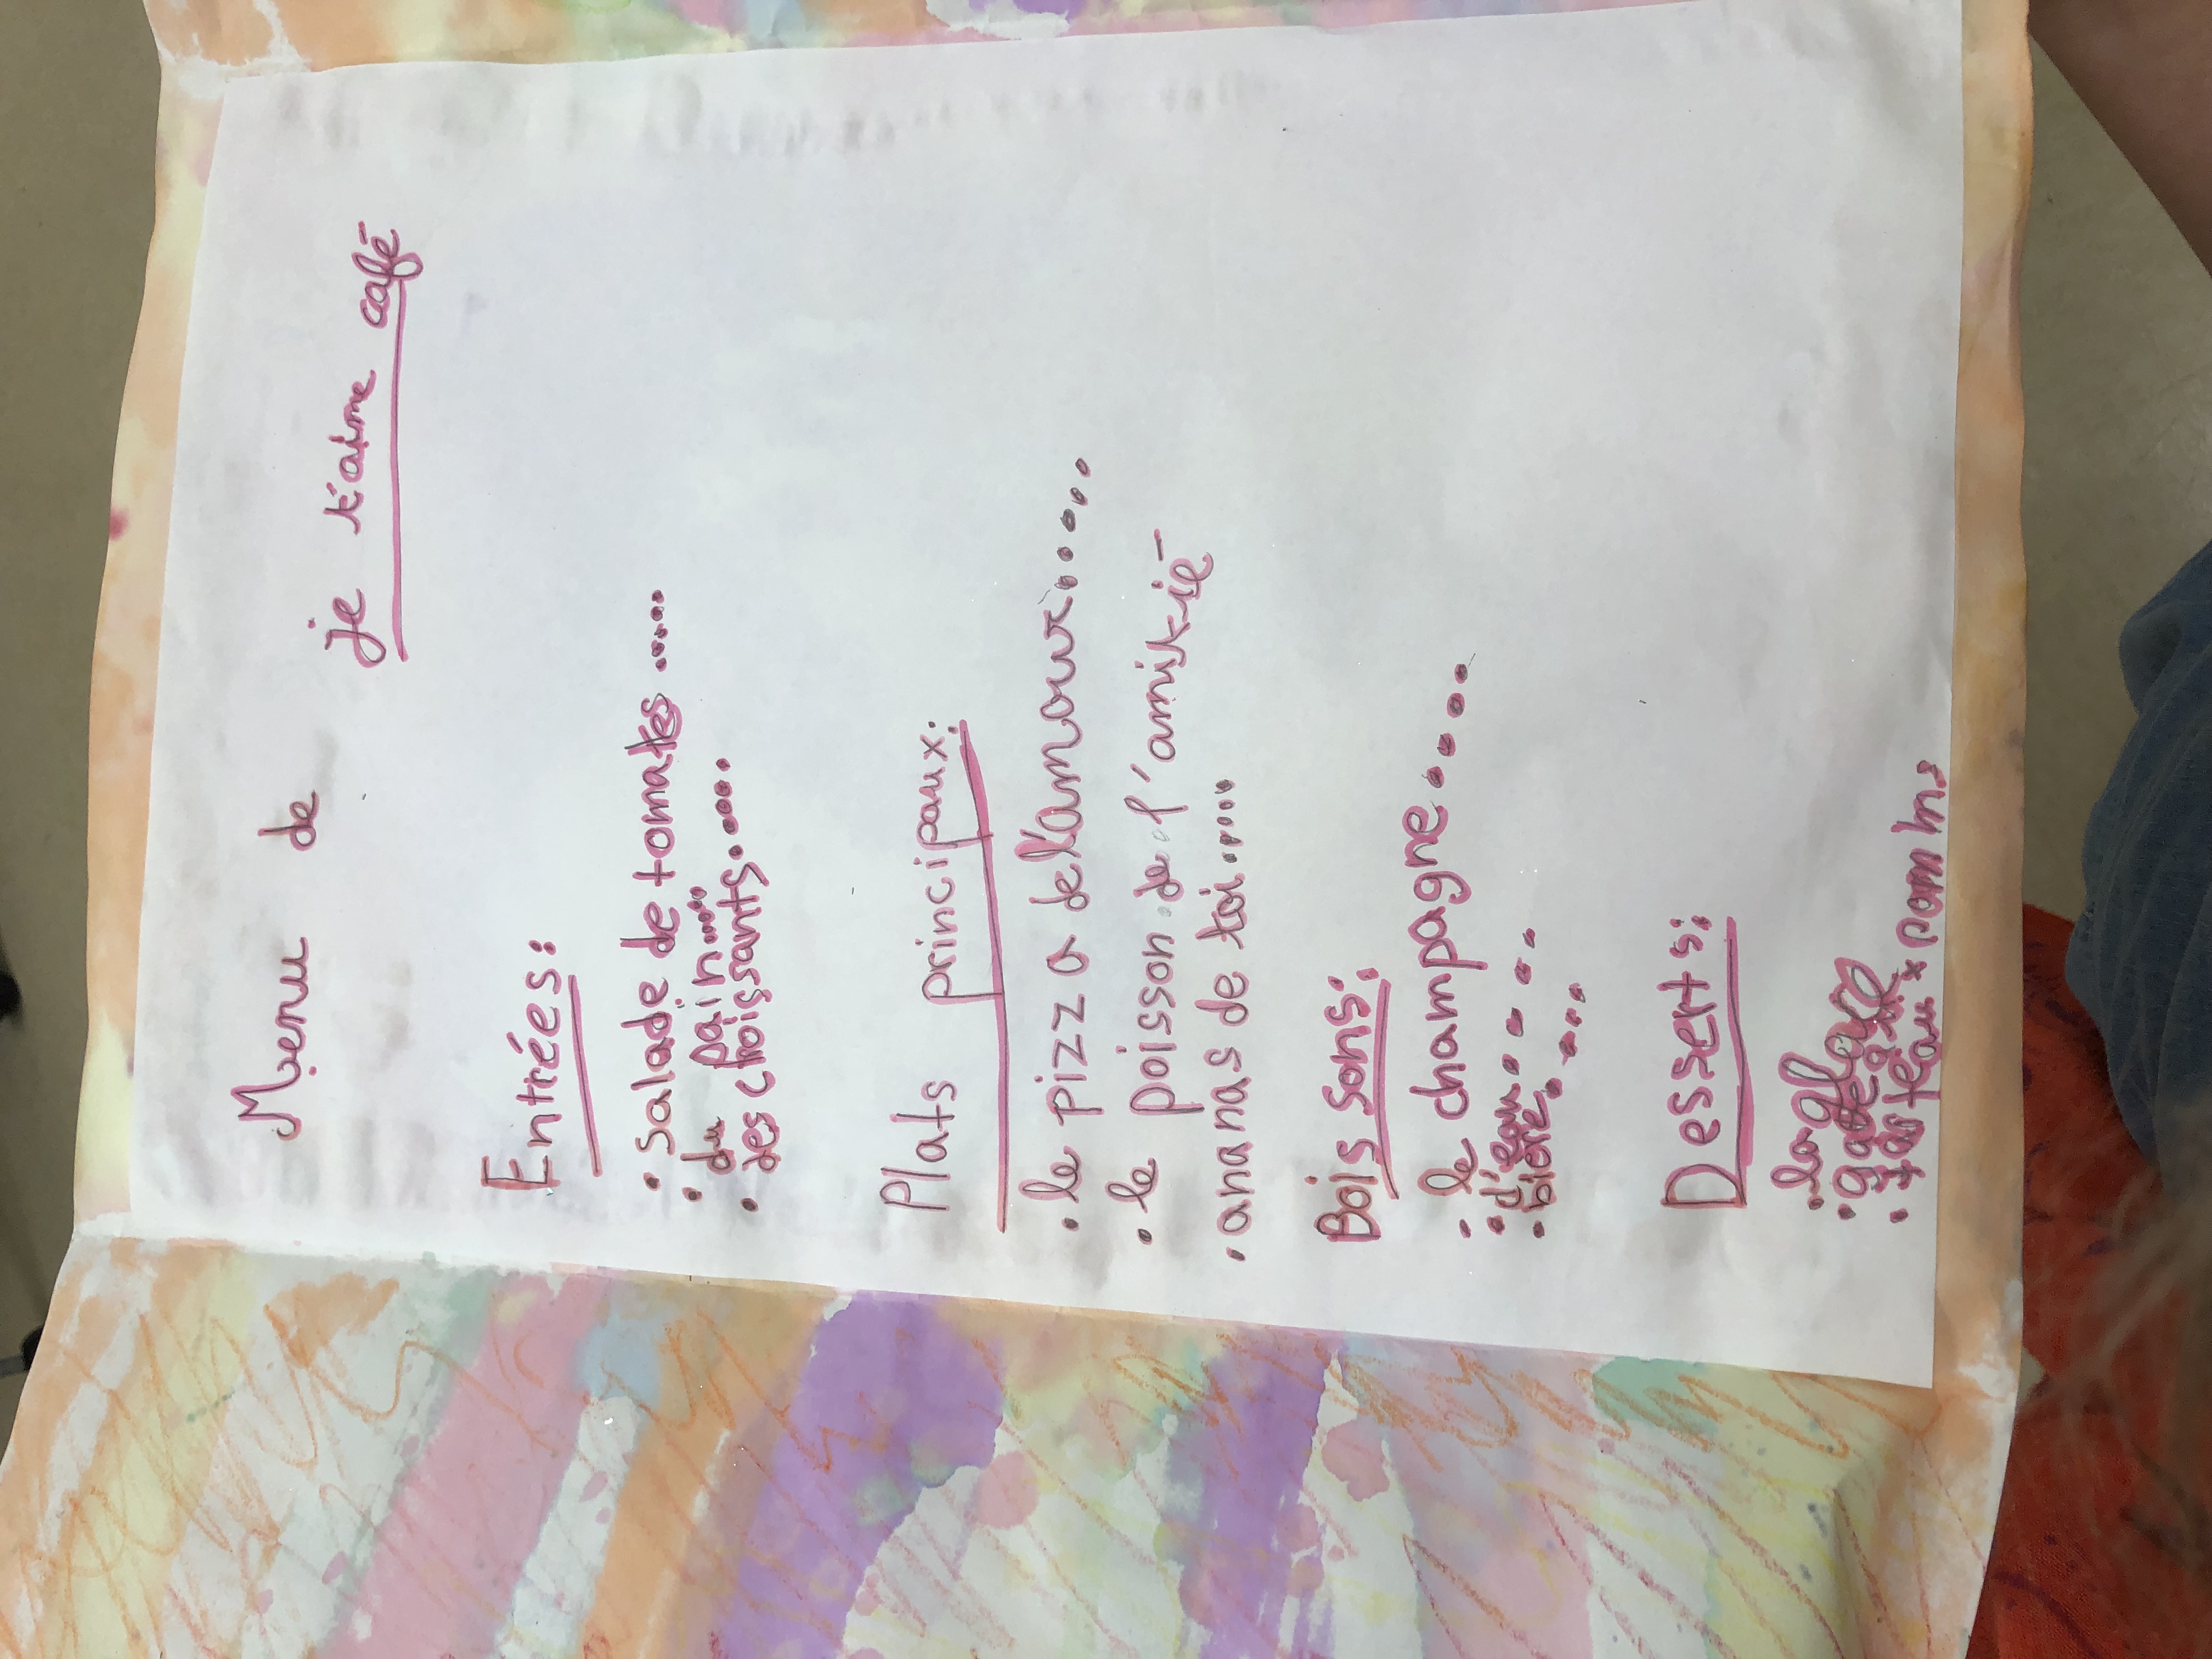 Menu de
je t'aime café
Entrées:
• salade de tomates......
• du pain.....
• des croissants.....
Plats principaux:
• le pizza de l'amour.......
• le poisson de l'amitié
• ananas de toi......
Boissons:
• le champagne.....
• d'eau....
• bière....
Desserts:
• la glace
•
•